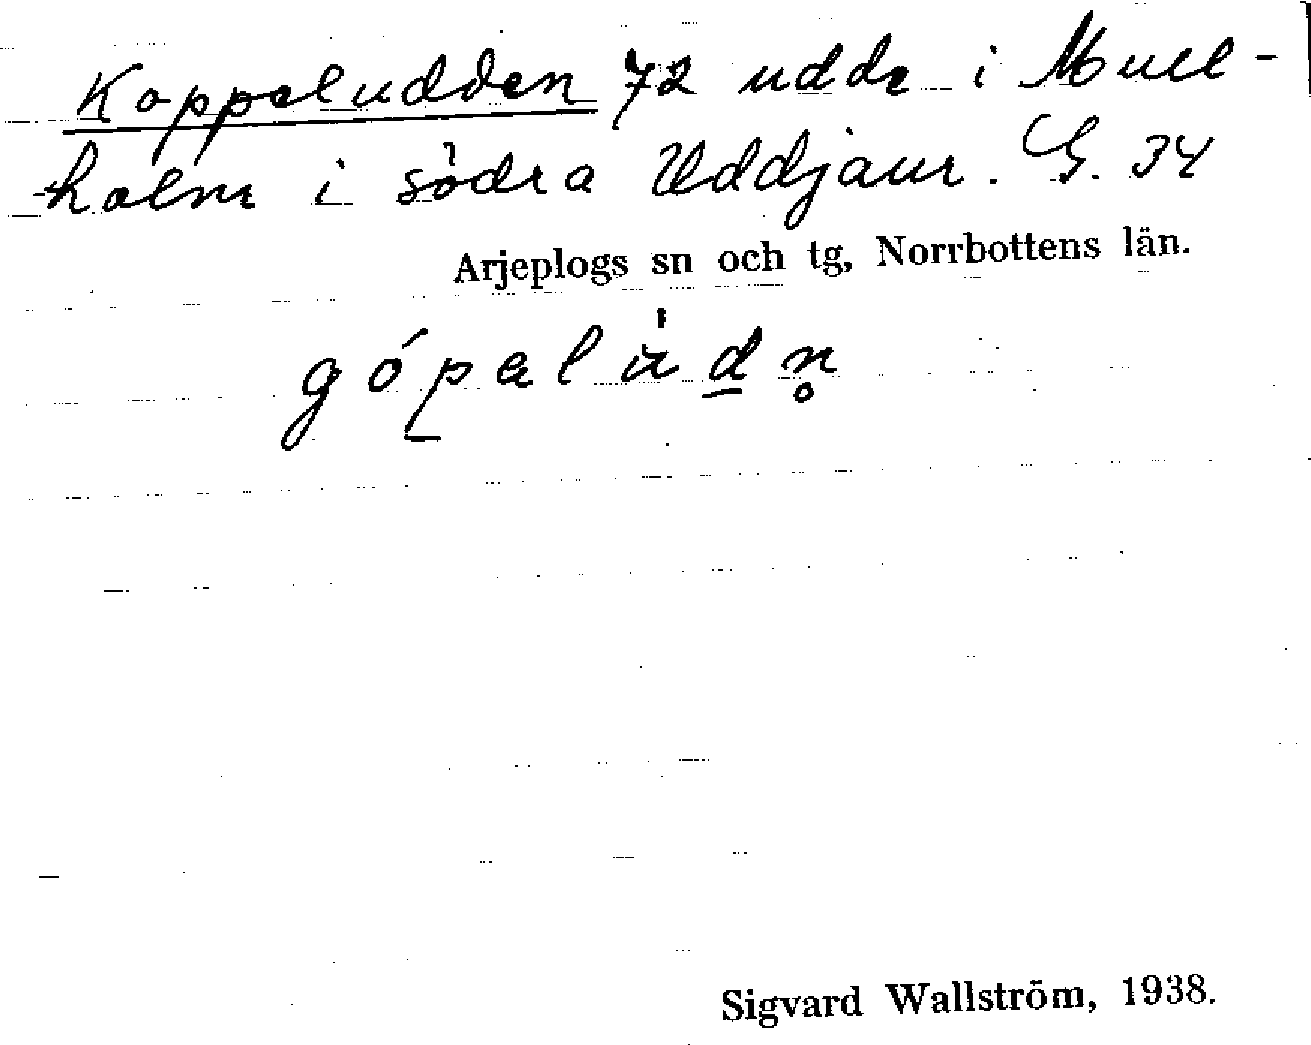 Koppeludden 72 udde i Mull-
holm i södra Uddjaur. G. 34
Arjeplogs sn och tg, Norrbottens län.
gópalùdn̥
Sigvard Wallström, 1938.